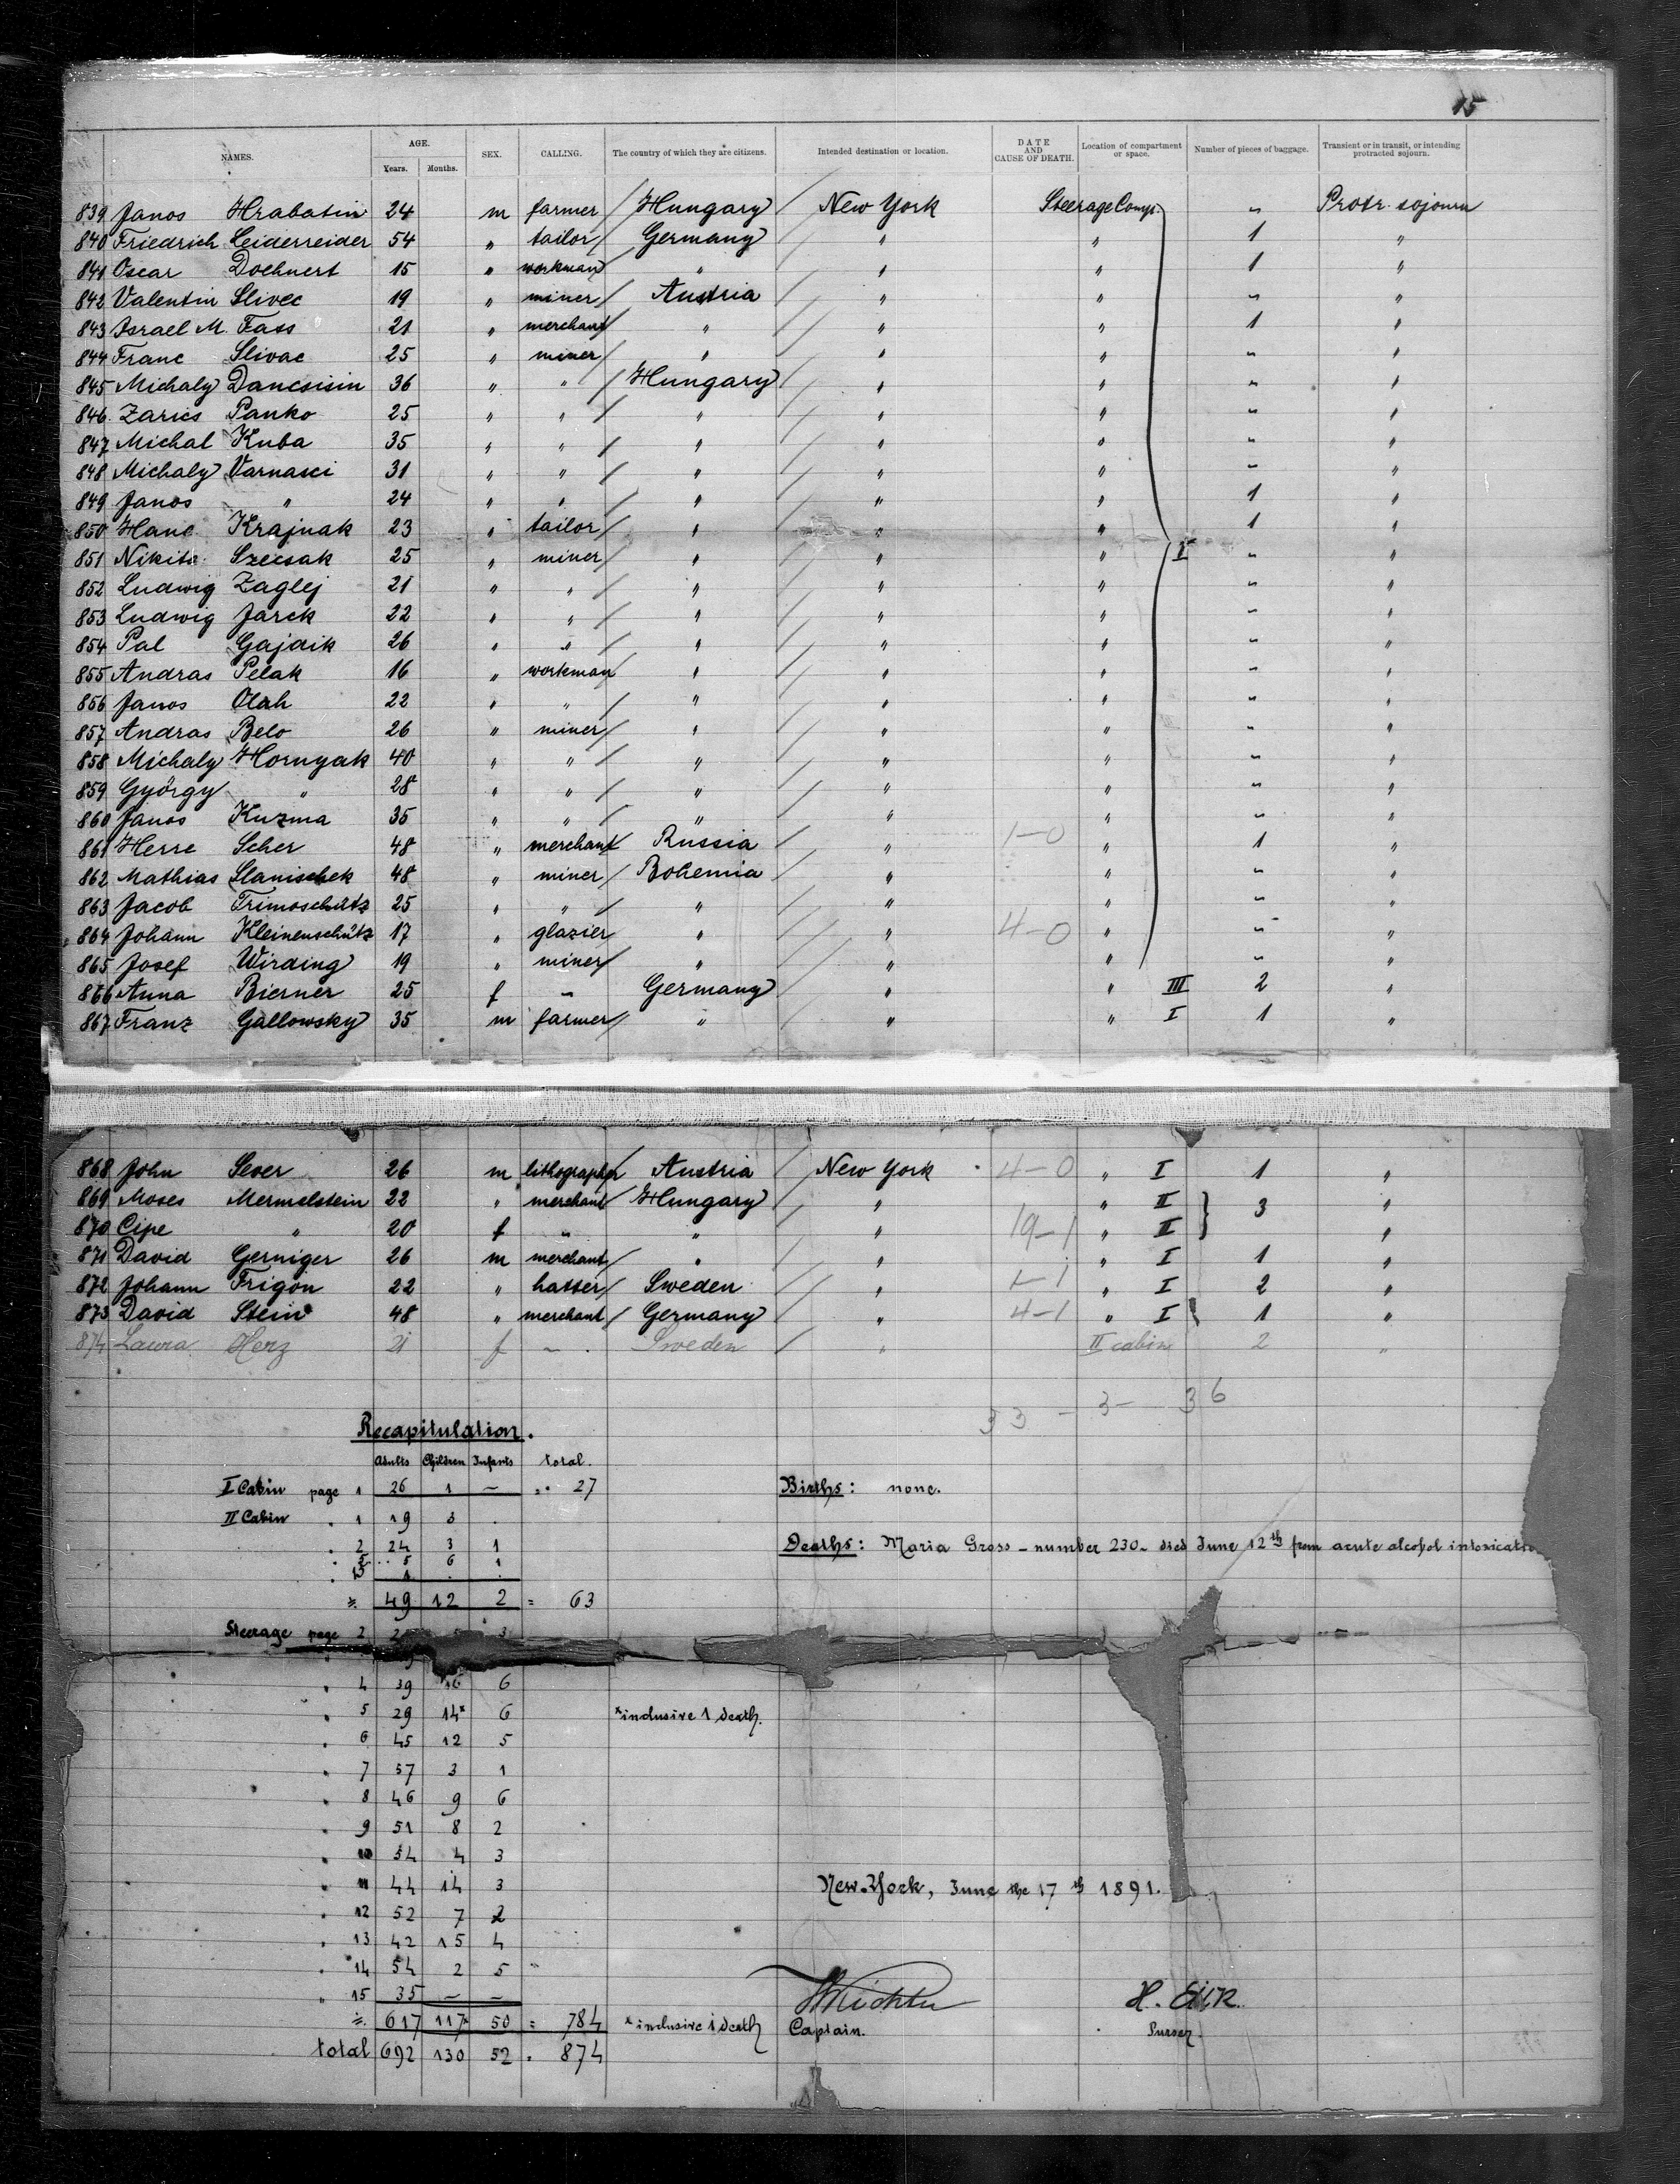 15
NAMES. AGE. Years. Months. SEX. CALLING. The country of which they are citizens. Intended destination or location. DATE AND CAUSE OF DEATH. Location of compartment or space. Number of pieces of baggage. Transient or in transit, or intending protracted sojourn.
839 Janos Hrabatin 24 m farmer Hungary New York Steerage Comp. " Protr. sojourn
840 Friedrich Leiderreider 54 " tailor Germany " " 1 "
841 Oscar Doehnert 15 " workman " " " 1 "
842 Valentin Slivec 19 " miner Austria " " " "
843 Israel M. Fass 21 " merchant " " " 1 "
844 Franc Slivac 25 " miner " " " " "
845 Michaly Dancsisin 36 " " Hungary " " " "
846 Zarics Panko 25 " " " " " " "
847 Michal Kuba 35 " " " " " " "
848 Michaly Varnasci 31 " " " " " " "
849 Janos " 24 " " " " " 1 "
850 Hanc Krajnak 23 " tailor " " " 1 "
851 Nikita Szecsak 25 " miner " " " I " "
852 Ludwig Zaglej 21 " " " " " " "
853 Ludwig Jarek 22 " " " " " " "
854 Pal Gajdik 26 " " " " " " "
855 Andras Pelak 16 " workman " " " " "
856 Janos Olah 22 " " " " " " "
857 Andras Belo 26 " miner " " " " "
858 Michaly Hornyak 40 " " " " " " "
859 György " 28 " " " " " " "
860 Janos Kuzma 35 " " " " " " "
861 Herse Scher 48 " merchant Russia " 1-0 " 1 "
862 Mathias Slanischek 48 " miner Bohemia " " " "
863 Jacob Trimoschütz 25 " " " " " " "
864 Johann Kleinenschütz 17 " glazier " " 4-0 " " "
865 Josef Wirding 19 " miner " " " " "
866 Anna Bierner 25 f - Germany " " III 2 "
867 Franz Gallowsky 35 m farmer " " " I 1 "
868 John Sever 26 m lithographer Austria New York 4-0 " I 1 "
869 Moses Mermelstein 22 " merchant Hungary " " II 3 "
870 Cipe " 20 f " " " 19-1 " II "
871 David Gerniger 26 m merchant " " " I 1 "
872 Johann Frigon 22 " hatter Sweden " 1-1 " I 2 "
873 David Stein 48 " merchant Germany " 4-1 " I 1 "
874 Laura Herz 21 f - Sweden " II cabin 2 "
33 - 3- 36
Recapitulation.
Adults Children Infants total.
I Cabin page 1 26 1 - = 27
Births: none.
II Cabin " 1 19 3 .
" 2 24 3 1
Deaths: Maria Gross - number 230 - died June 12th from acute alcohol
" 5 5 6 1
" 15 1 . .
49 12 2 = 63
Steerage page 2 3
" 4 39 16 6
" 5 29 14x 6 x inclusive 1 death.
" 6 45 12 5
" 7 57 3 1
" 8 46 9 6
" 9 51 8 2
" 10 54 4 3
" 11 44 14 3
New-York, June the 17th 1891.
" 12 52 7 2
" 13 42 15 4
" 14 54 2 5
" 15 35 - -
H. Eilk
617 117x 50 = 784 x inclusive 1 death Captain. Purser.
total 692 130 52 = 874